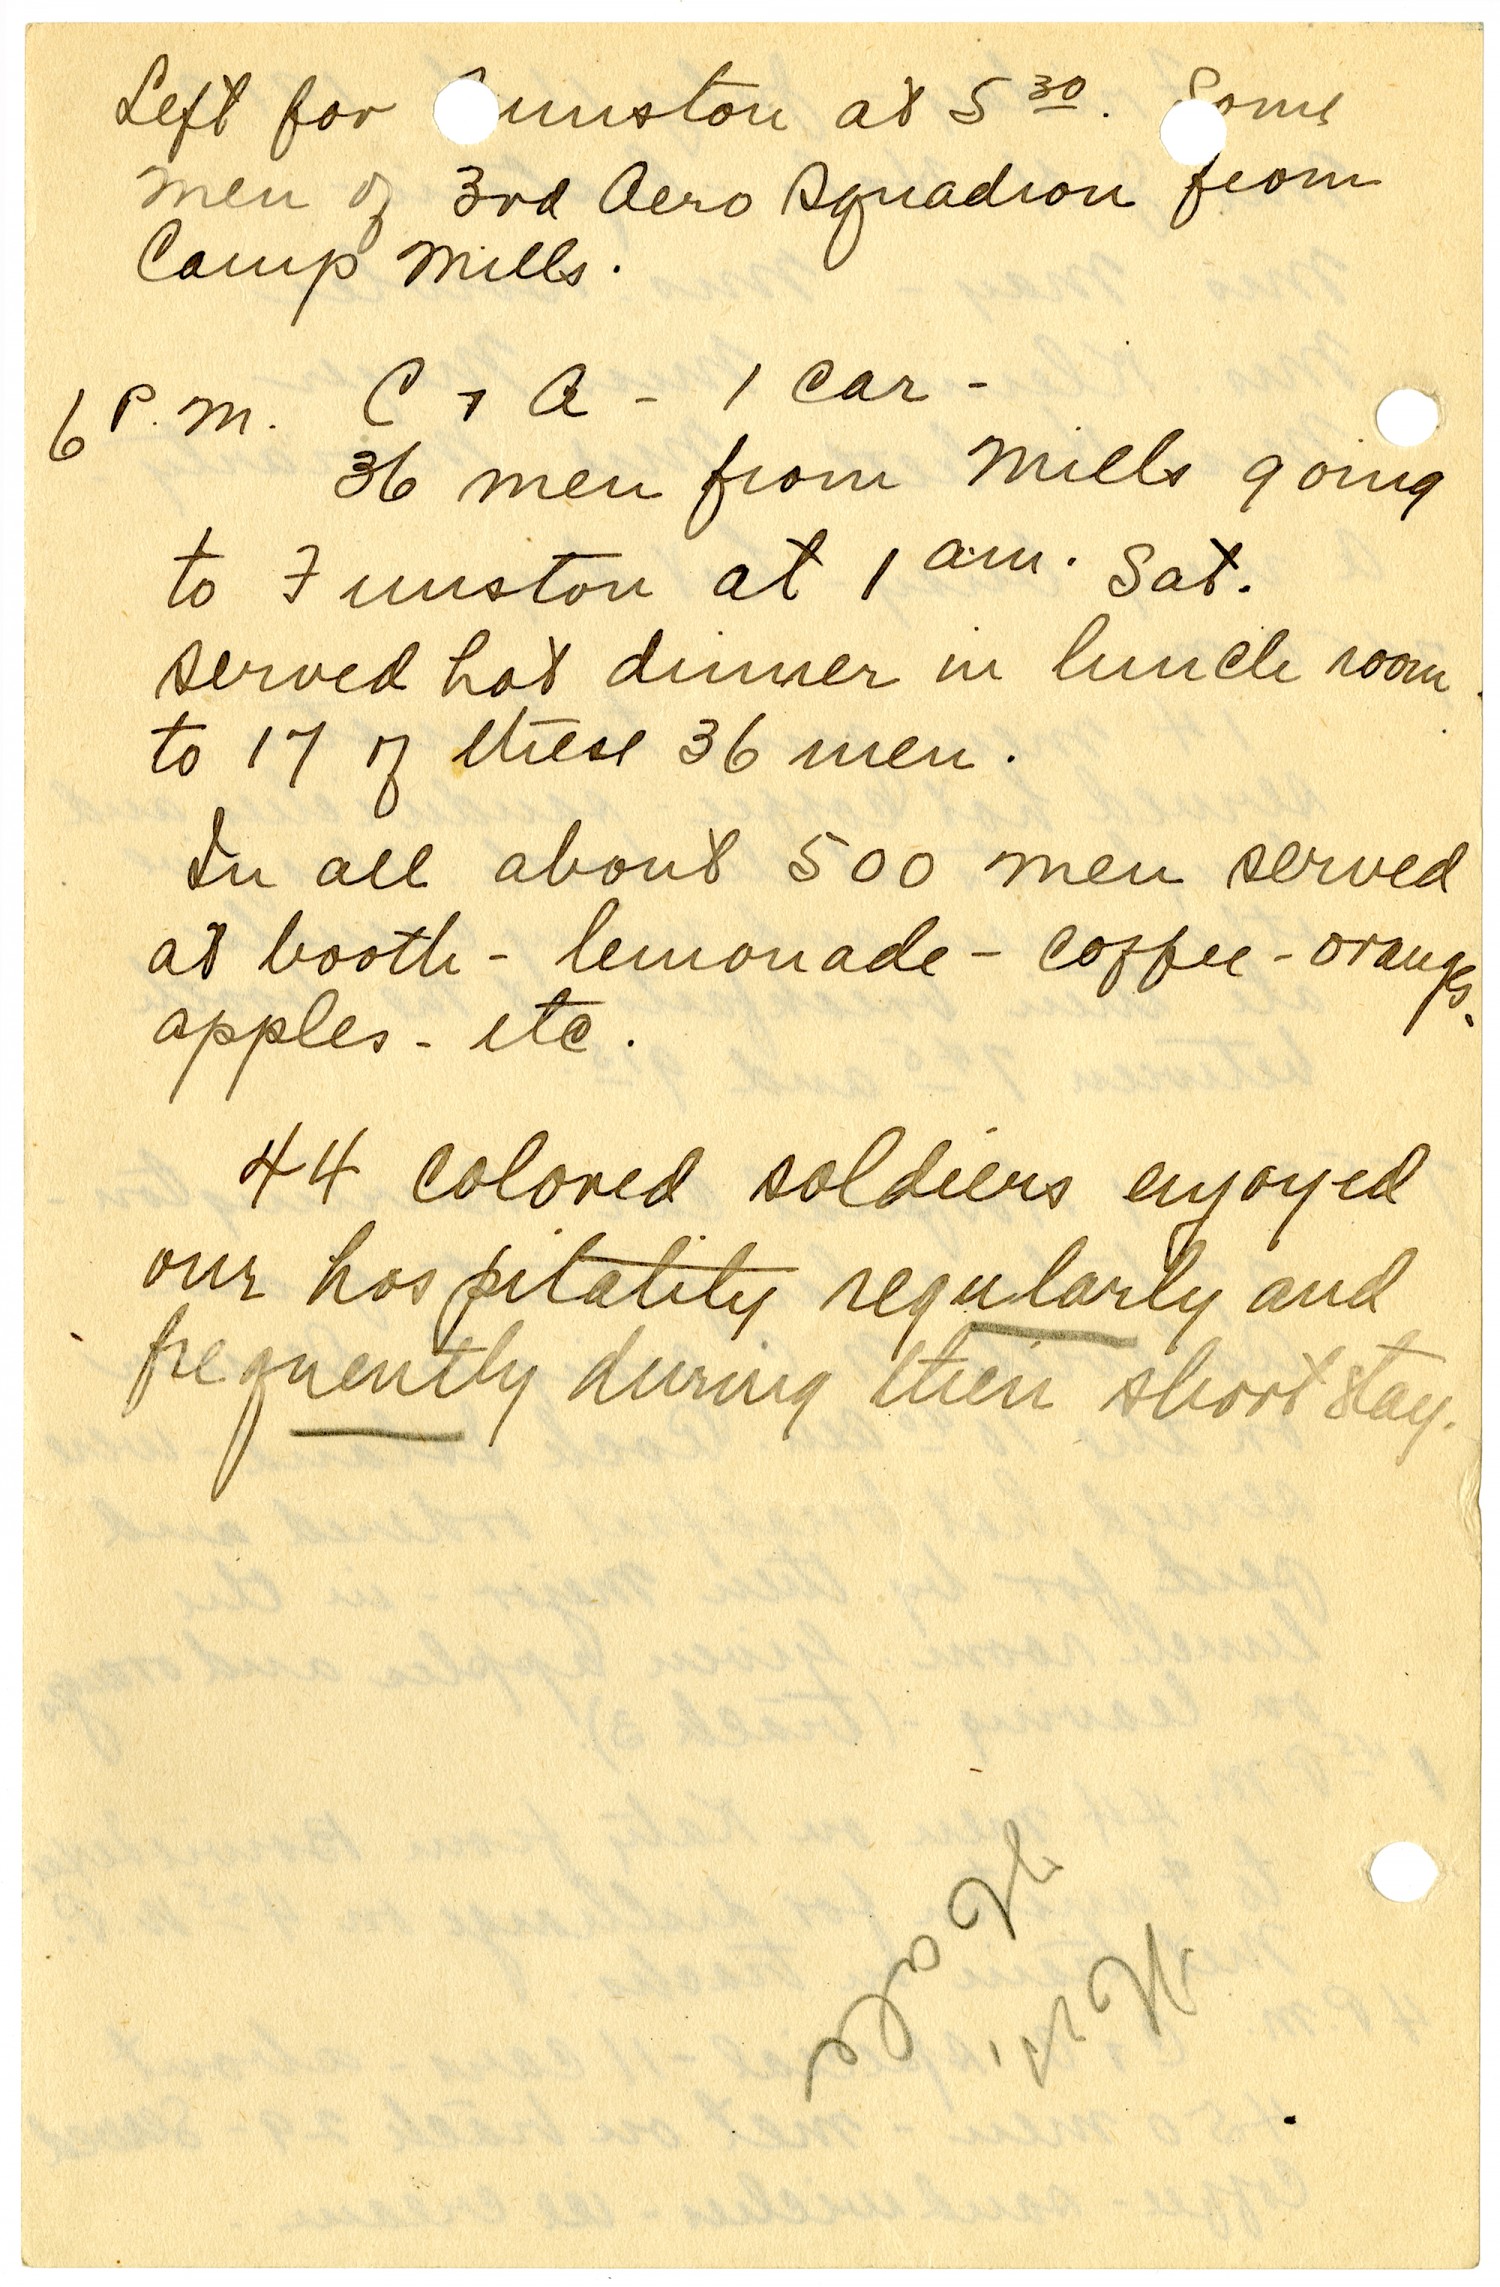 Left for Funston at 5 30. Some
men of 3rd Aero Squadron from
Camp Mills.
6 P.M. C + A - 1 car -
36 men from Mills going
to Funston at 1 a.m. Sat.
served hot dinner in lunch room.
to 17 of these 36 men.
In all about 500 men served
at booth - lemonade - coffee - oranges.
apples - etc.
44 colored soldiers enjoyed
our hospitality regularly and
frequently during their short stay.